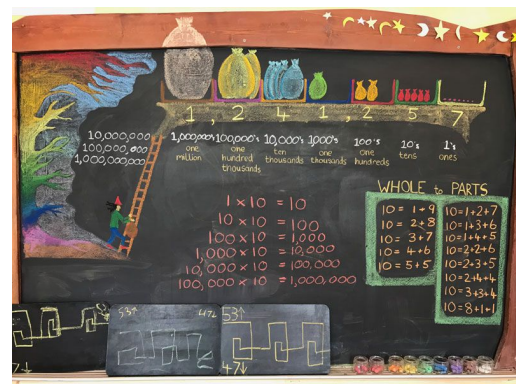 1,241,257
10,000,000
100,000,000
1,000,000,000
1,000,000's one million
100,000's one hundred thousands
10,000's ten thousands
1,000's one thousands
100's one hundreds
10's tens
1's ones
1 x 10 = 10
10 x 10 = 100
100 x 10 = 1,000
1,000 x 10 = 10,000
10,000 x 10 = 100,000
100,000 x 10 = 1,000,000
WHOLE to PARTS
10 = 1+9
10 = 2+8
10 = 3+7
10 = 4+6
10 = 5+5
10=1+2+7
10=1+3+6
10=1+4+5
10=2+2+6
10=2+3+5
10=2+4+4
10=3+3+4
10=8+1+1
53↑
47↓
53↑